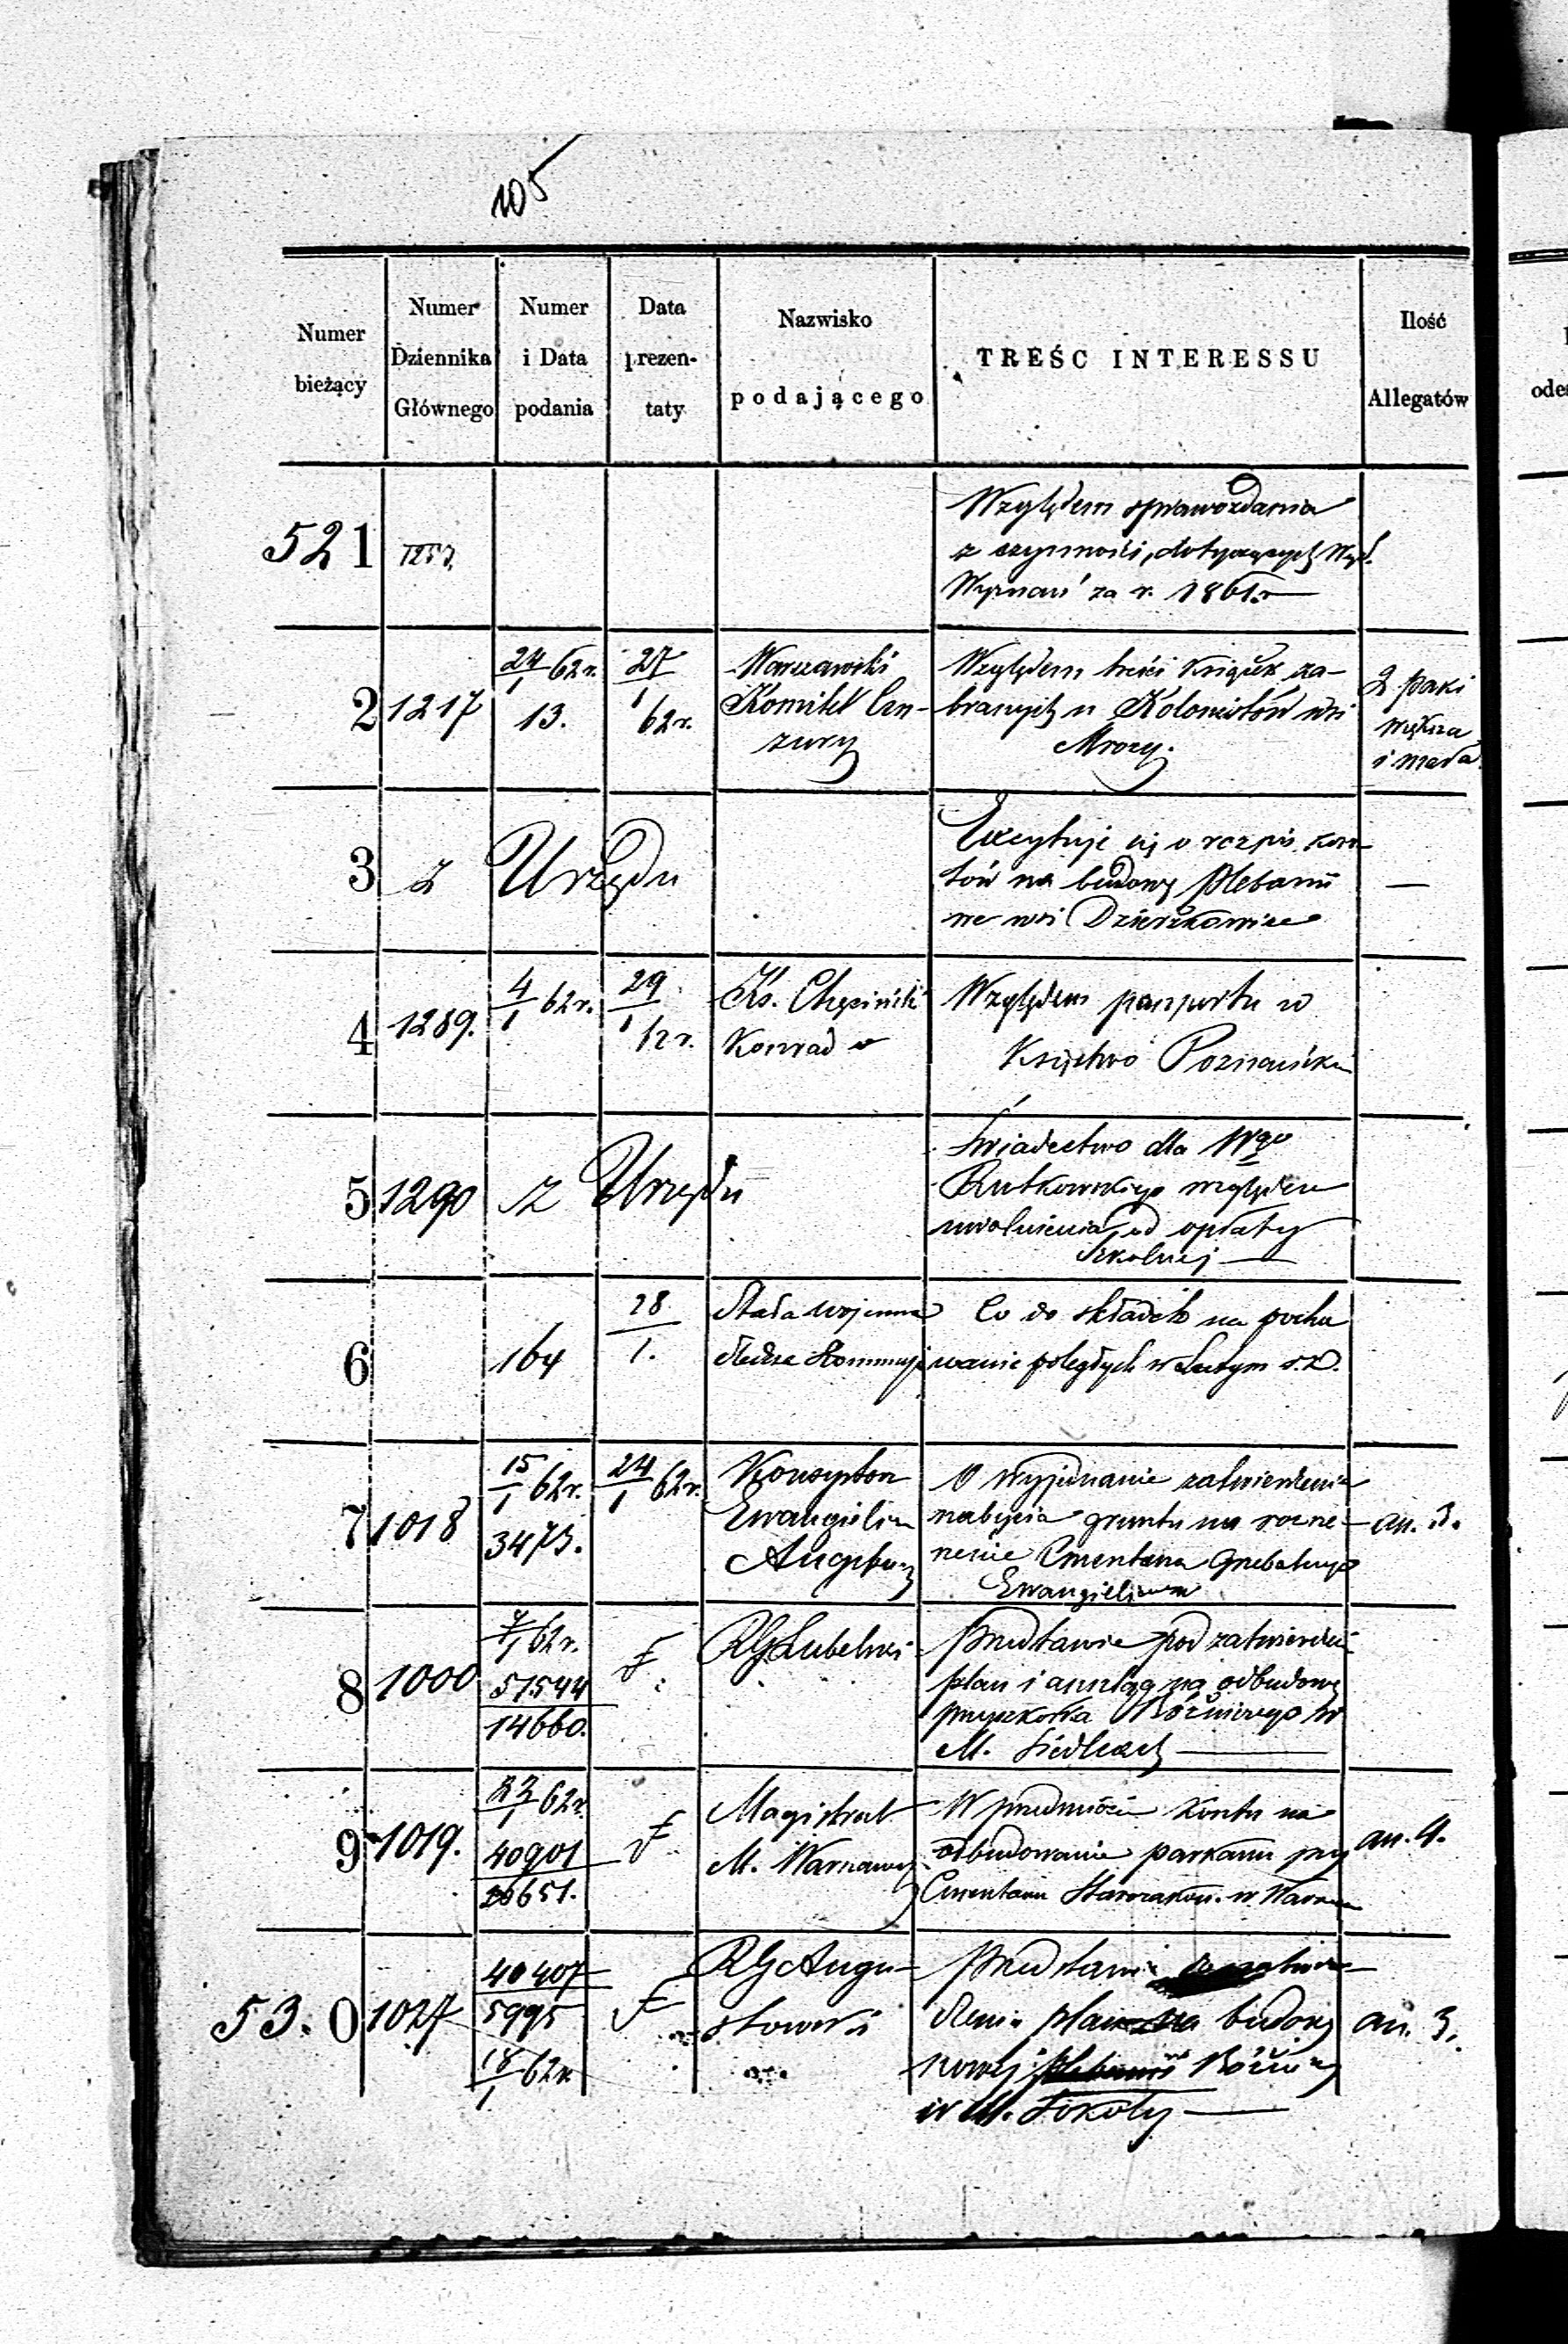 105
Numer bieżący
Numer Dziennika Głównego
Numer i Data podania
Data prezen- taty
Nazwisko podającego
TREŚC INTERESSU
Ilość Allegatów
521 1257.
Względem sprawozdania
z czynności, dotyczących Wydz.
Wyznań za r. 1861.r
2 1217 24/1 62r. 13. 27/1 62r.
Warszawski
Komitet Cen-
zury
Względem treści Książek za-
branych u Kolonistów wsi
Mrozy.
2 paki
większa
i mała
3 z Urzędu
Excytuje się o rozpis kosz-
tów na budowę plebanii
we wsi Dzierzkowice
—
4 1289. 4/1 62r. 29/1 62r.
Ks. Chęciński
Konrad
Względem paszportu w
Księstwo Poznańskie
5 1290 z Urzędu
Świadectwo dla Wgo
Rutkowskiego względem
uwolnienia od opłaty
Szkolnej
6 164 28/1.
Stała wojenna
Śledcza Kommisja
Co do składek na pocho
wanie poległych w Lutym r.z.
7 1018 15/1 62r. 3473. 24/1 62r.
Konsystorz
Ewangielicko
Augsburg
O wyjednanie zatwierdzenia
nabycia gruntu na rozsze-
rzenie Cmentarza Grzebalnego
Ewangielickiego
an. 3.
8 1000 7/1 62r. 51544 14660.
RG Lubelski
Przedstawia pod zatwierdze
plan i anszlag na odbudowę
przyszkółka Bóżniczego w
M. Siedlcach
9 1019. 22/1 62r. 40901 20651.
Magistrat
M. Warszawy
W przedmiocie Kosztu na
odbudowanie parkanu przy
Cmentarzu Starozakon. w Warszawie
an. 4.
53.0 1027 40407 5995 18/1 62r.
RG Augu-
stowski
Przedstawia do zatwier-
dzenia plan na budowę
nowej Bóżnicy
w M. Sokoły
an. 3.
odes